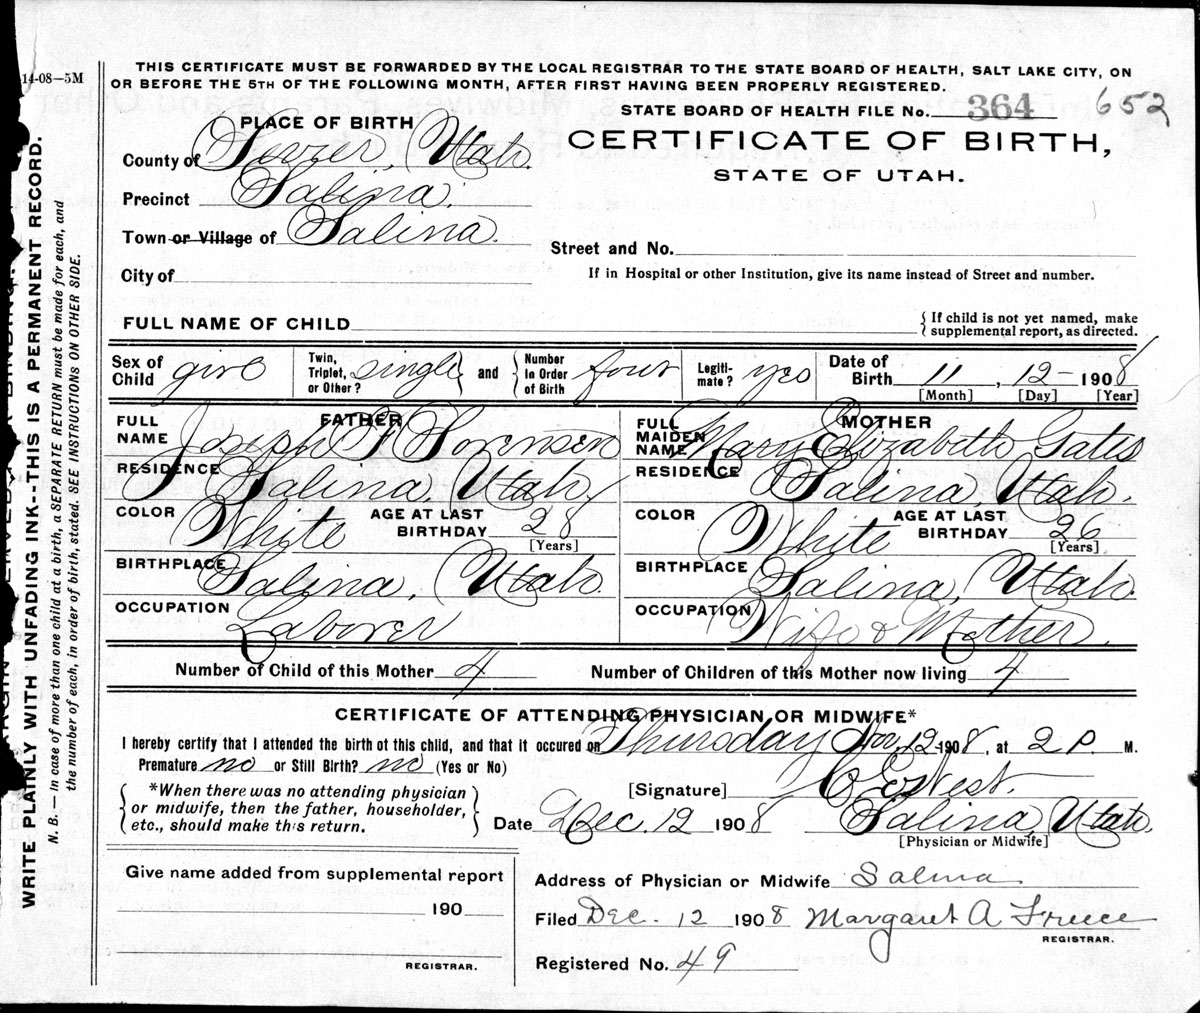 14-08—5M
THIS CERTIFICATE MUST BE FORWARDED BY THE LOCAL REGISTRAR TO THE STATE BOARD OF HEALTH, SALT LAKE CITY, ON
OR BEFORE THE 5TH OF THE FOLLOWING MONTH, AFTER FIRST HAVING BEEN PROPERLY REGISTERED.
STATE BOARD OF HEALTH FILE No. 364 652
PLACE OF BIRTH
CERTIFICATE OF BIRTH,
STATE OF UTAH.
County of Sevier, Utah.
Precinct Salina
Town or Village of Salina.
Street and No.
City of
If in Hospital or other Institution, give its name instead of Street and number.
FULL NAME OF CHILD
{ If child is not yet named, make
supplemental report, as directed.
Sex of Child girl Twin, Triplet, or Other? single and Number in Order of Birth four Legiti-mate? yes Date of Birth 11, 12-1908
[Month] [Day] [Year]
FATHER
FULL NAME Joseph F. Sorensen
RESIDENCE Salina, Utah
COLOR White AGE AT LAST BIRTHDAY 28
[Years]
BIRTHPLACE Salina, Utah.
OCCUPATION Laborer
MOTHER
FULL MAIDEN NAME Mary Elizabeth Gates
RESIDENCE Salina, Utah.
COLOR White AGE AT LAST BIRTHDAY 26
[Years]
BIRTHPLACE Salina, Utah.
OCCUPATION Wife & Mother.
Number of Child of this Mother 4 Number of Children of this Mother now living 4
CERTIFICATE OF ATTENDING PHYSICIAN OR MIDWIFE*
I hereby certify that I attended the birth ot this child, and that it occured on Thursday Nov. 12-1908, at 2 P. M.
Premature no or Still Birth? no (Yes or No)
*When there was no attending physician
or midwife, then the father, householder,
etc., should make this return.
[Signature] West.
Date Dec. 12 1908 Salina, Utah.
[Physician or Midwife]
Give name added from supplemental report
190
REGISTRAR.
Address of Physician or Midwife Salina
Filed Dec. 12 1908 Margaret A
REGISTRAR.
Registered No. 49
WRITE PLAINLY WITH UNFADING INK--THIS IS A PERMANENT RECORD.
N. B.— In case of more than one child at a birth, a SEPARATE RETURN must be made for each, and
the number of each, in order of birth, stated. SEE INSTRUCTIONS ON OTHER SIDE.